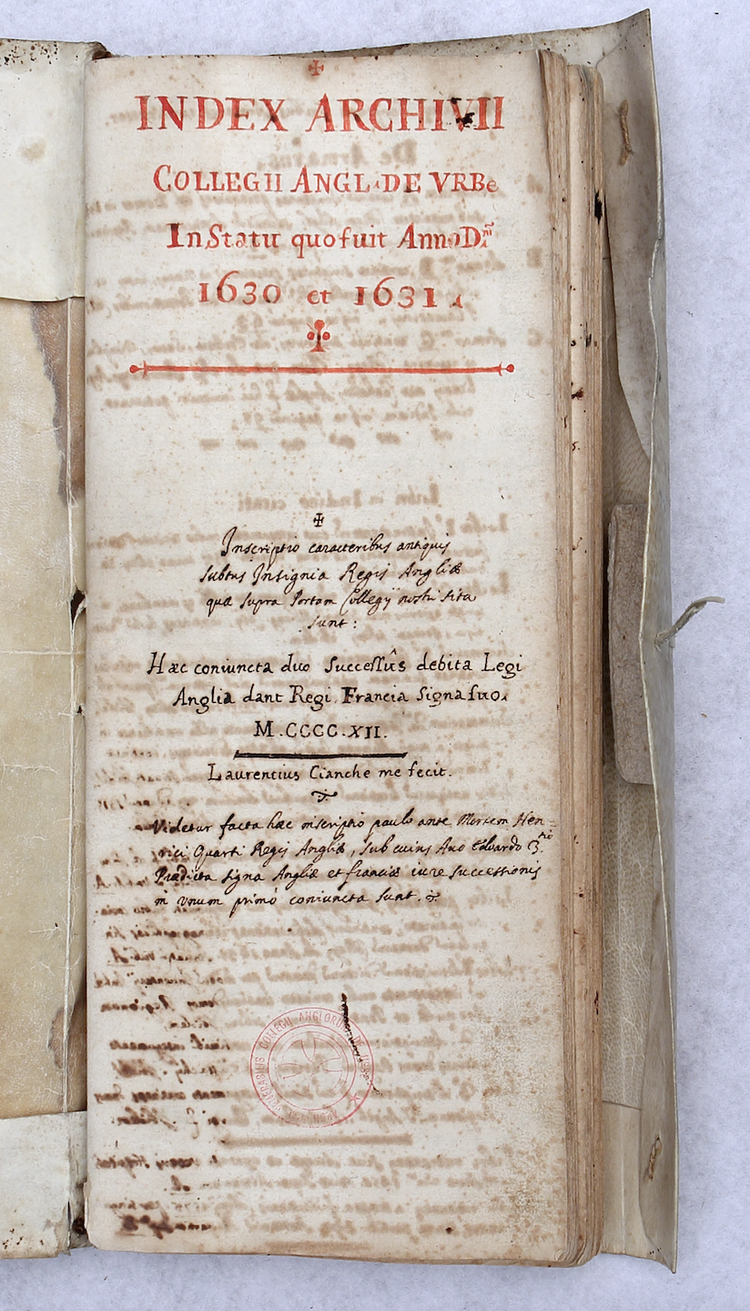 INDEX ARCHIVII
COLLEGII ANGL. DE VRBe
In Statu quo fuit Anno Dñi
1630 et 1631.
Inscriptio caracteribus antiquis
subtus Insignia Regis Angliæ
quæ supra Portam Collegij nostri sita
sunt:
Hæc coniuncta duo Successûs debita Legi
Anglia dant Regi Francia Signa suo.
M.CCCC.XII.
Laurentius Cianche me fecit.
Videtur facta hæc inscriptio paulo ante Mortem Hen=
rici Quarti Regis Angliæ, sub cuius Auo Edoardo 3.tio
Prædicta signa Angliæ et franciæ iure successionis
in vnum primò coniuncta sunt.
COLLEGII ANGLORUM DE URBE